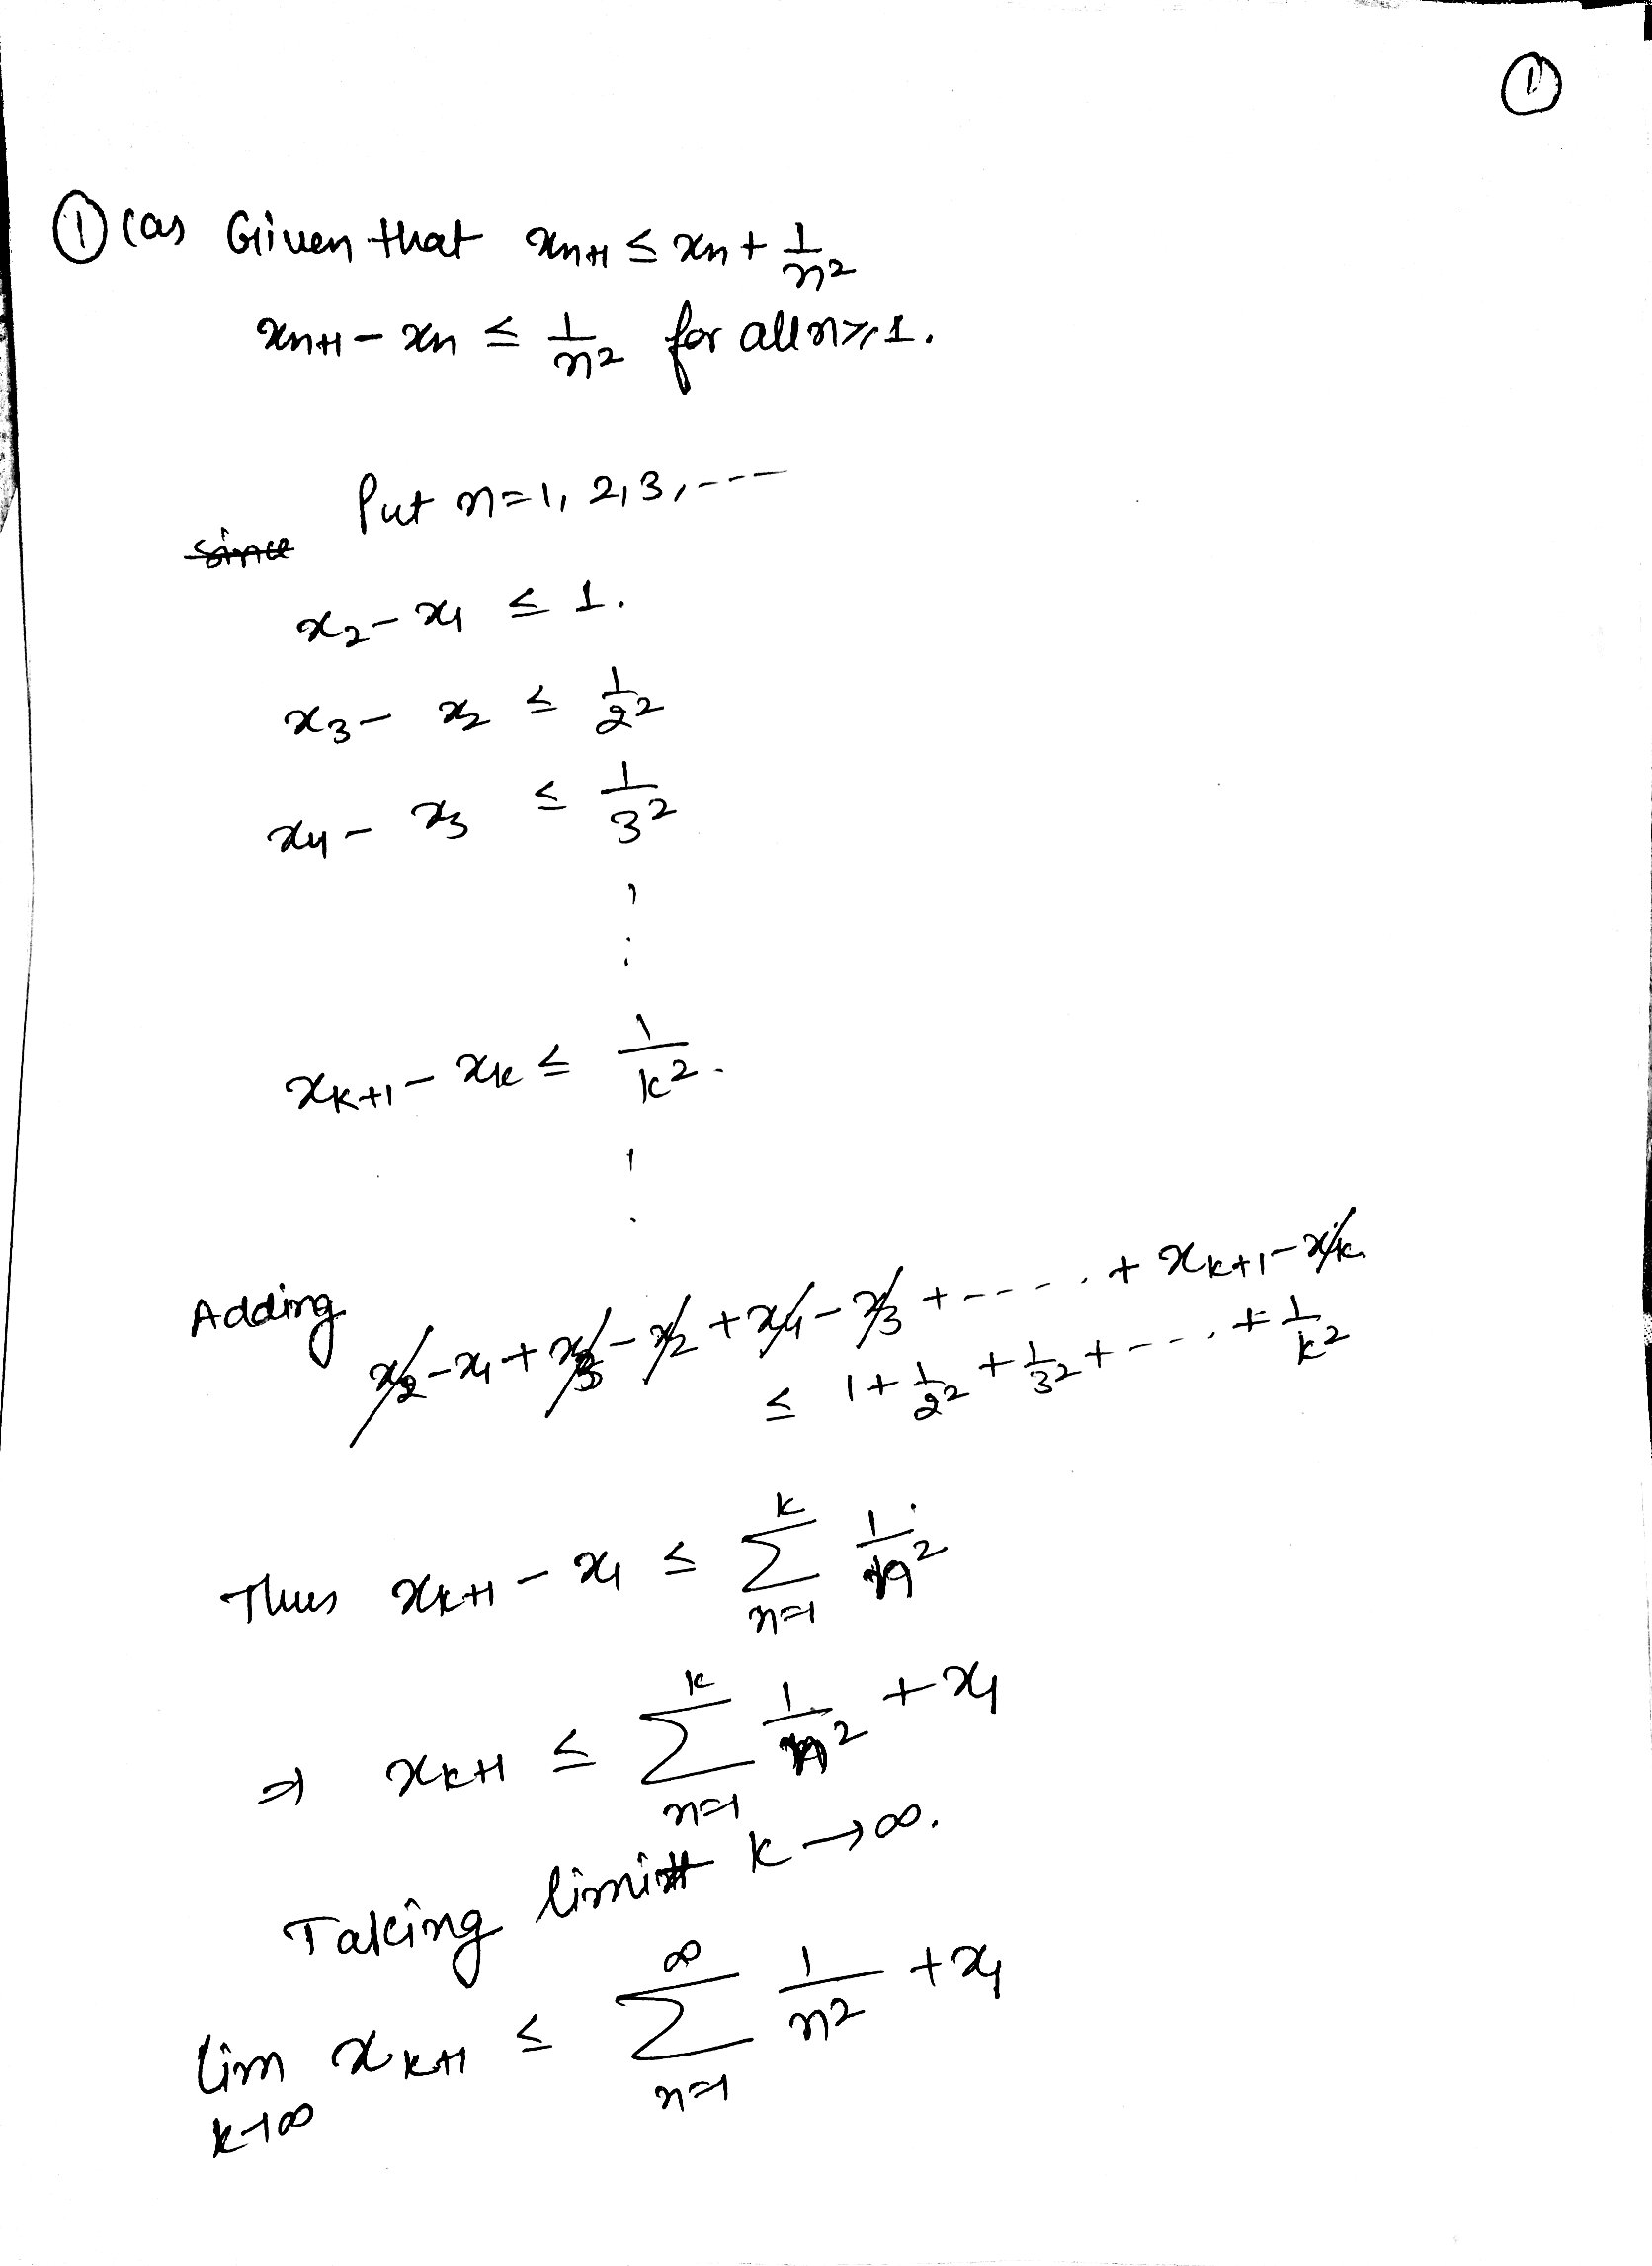 ①
① (a) Given that xₙ₊₁ ≤ xₙ + 1/n²
xₙ₊₁ − xₙ ≤ 1/n² for all n ≥ 1.
Put n=1, 2, 3, ----
since
x₂ − x₁ ≤ 1.
x₃ − x₂ ≤ 1/2²
x₄ − x₃ ≤ 1/3²
⋮
xₖ₊₁ − xₖ ≤ 1/k².
⋮
Adding x₂ − x₁ + x₃ − x₂ + x₄ − x₃ + ----.. + xₖ₊₁ − xₖ
≤ 1 + 1/2² + 1/3² + ---.. + 1/k²
Thus xₖ₊₁ − x₁ ≤ ∑_{n=1}^{k} 1/n²
⇒ xₖ₊₁ ≤ ∑_{n=1}^{k} 1/n² + x₁
Taking limit k → ∞.
lim_{k→∞} xₖ₊₁ ≤ ∑_{n=1}^{∞} 1/n² + x₁